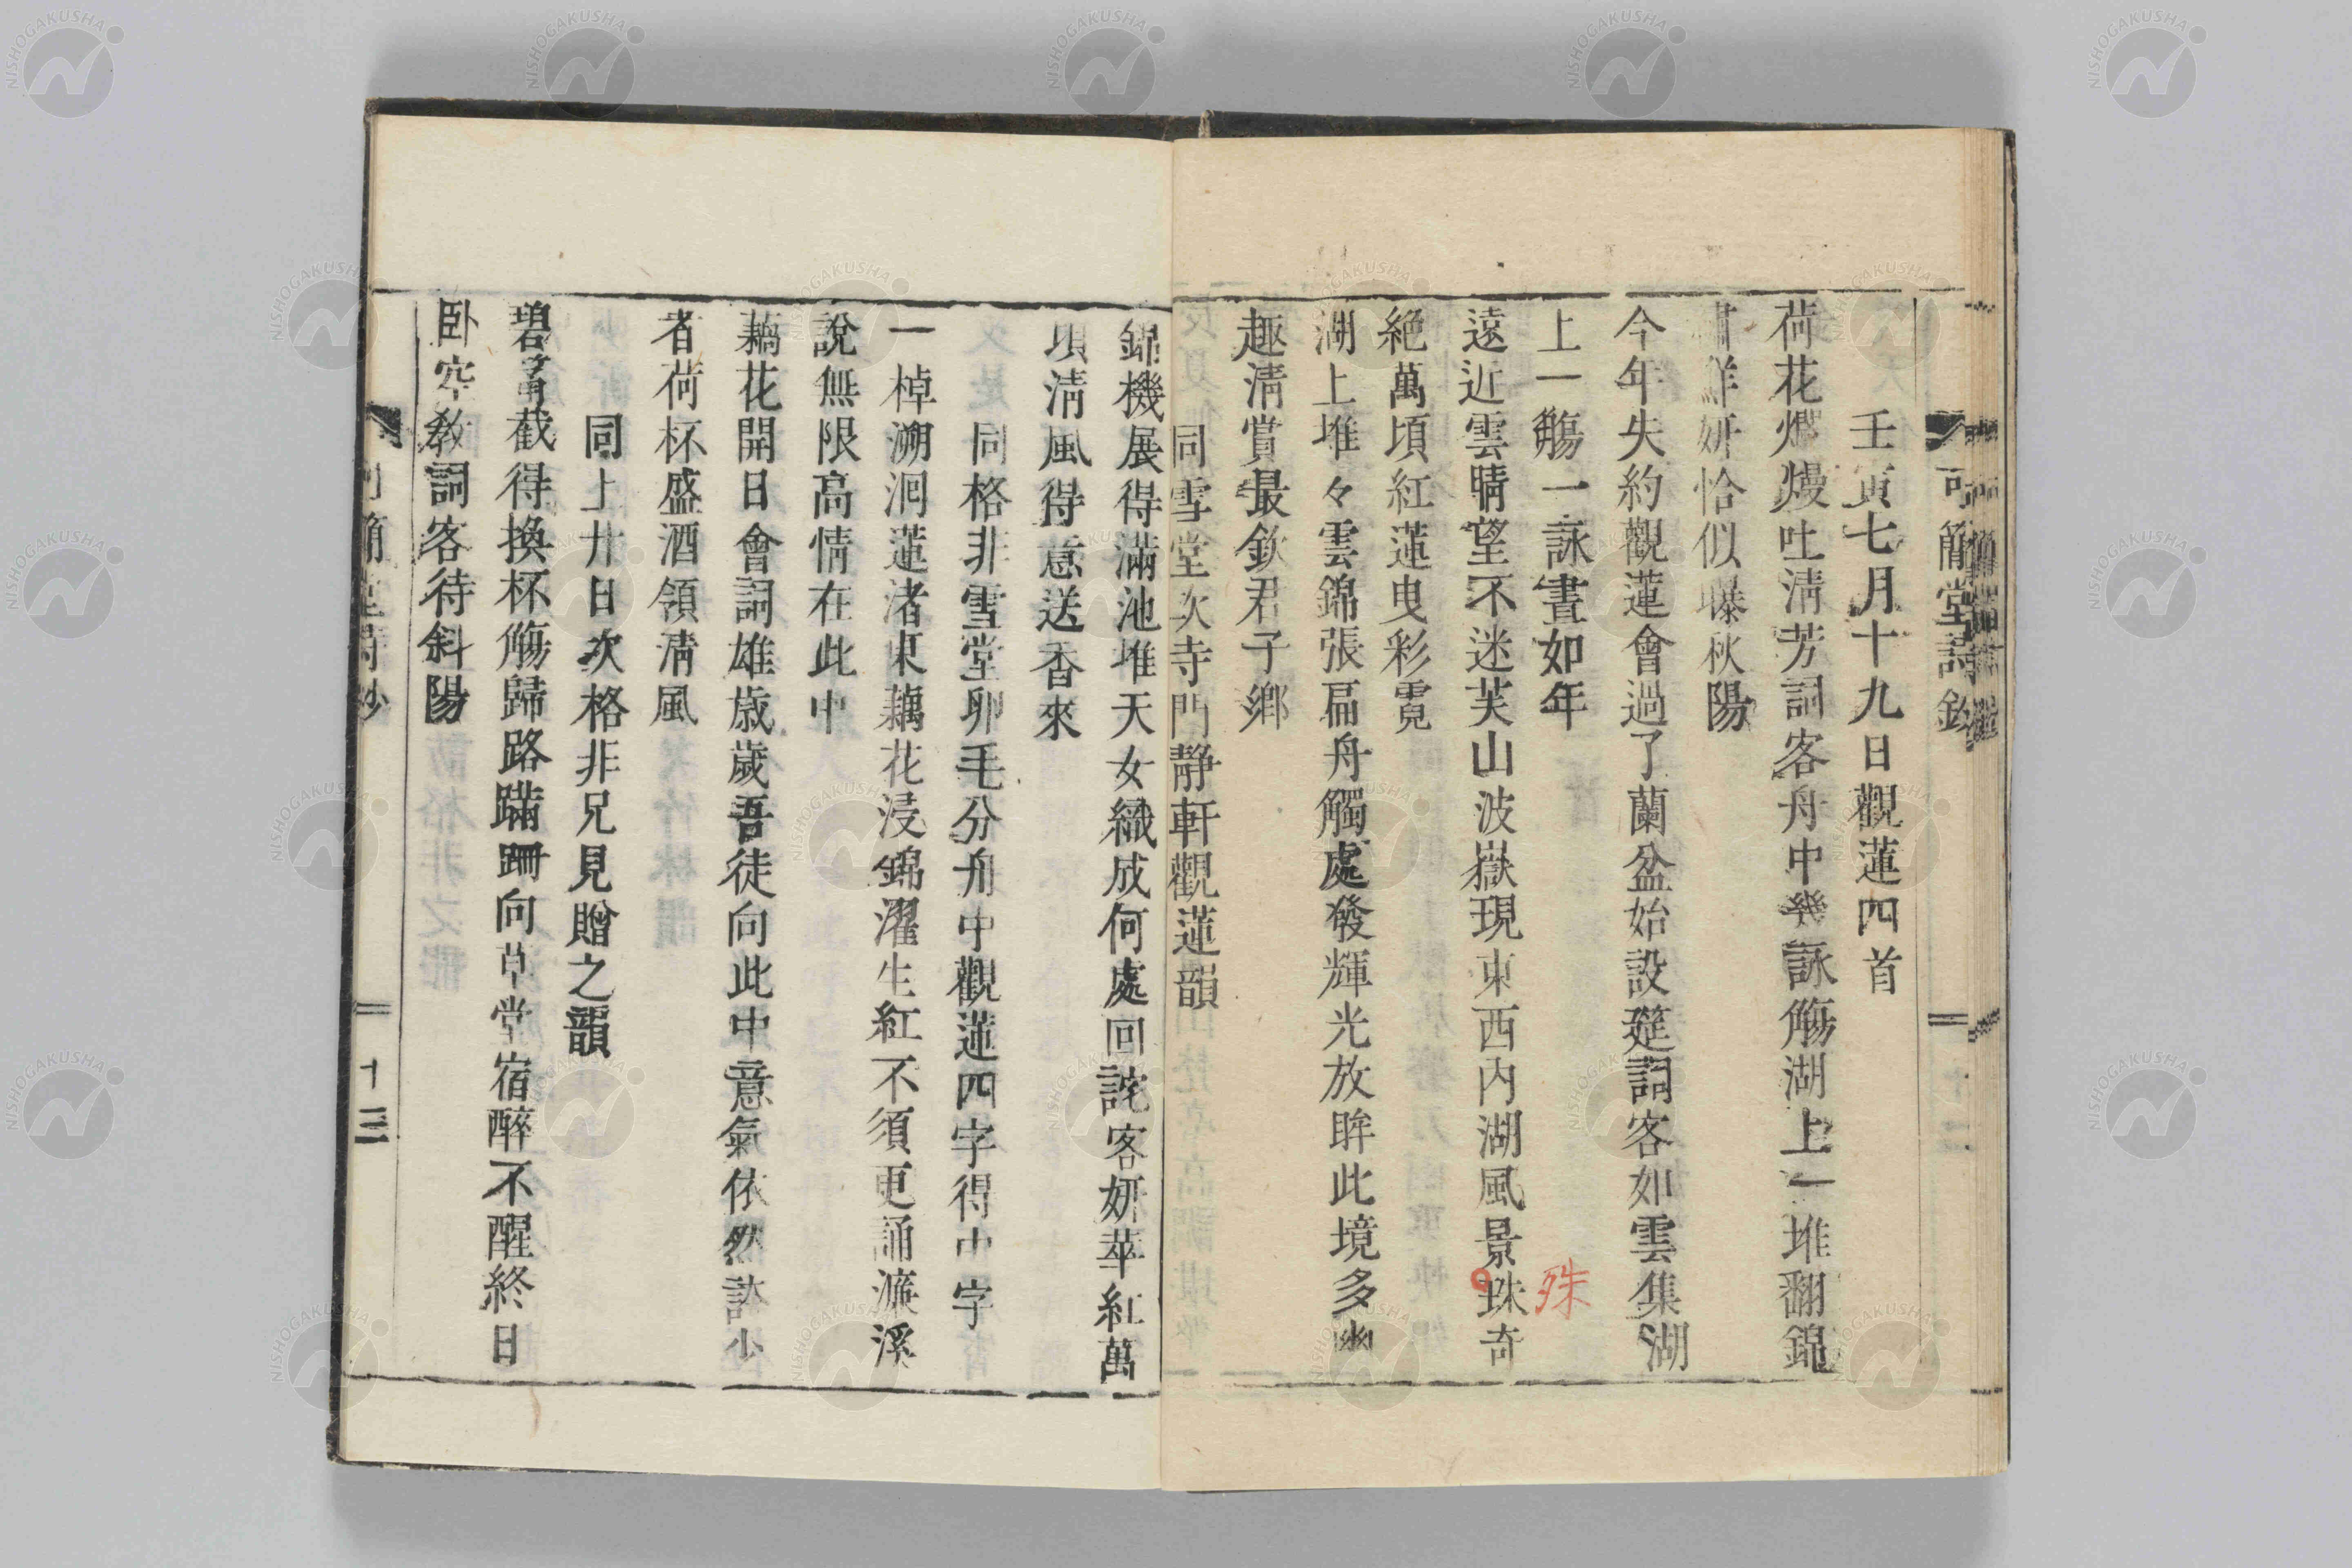 可簡堂詩鈔
壬寅七月十九日觀蓮四首
荷花爛熳吐淸芳詞客舟中幾詠觴湖上一堆翻錦
鮮妍恰似曝秋陽
今年失約觀蓮會過了蘭盆始設筵詞客如雲集湖
上一觴一詠晝如年
遠近雲晴望不迷芙山波嶽現東西內湖風景珠奇
殊
絕萬頃紅蓮曳彩霓
湖上堆々雲錦張扁舟觸處發輝光放眸此境多幽
趣淸賞最欽君子鄉
同雪堂次寺門靜軒觀蓮韻
錦機展得滿池堆天女織成何處回詫客妍萃紅萬
項淸風得意送香來
同格非雪堂卯毛分舟中觀蓮四字得中字
一棹溯洄蓮渚東藕花浸錦濯生紅不須更誦濂溪
說無限高情在此中
藕花開日會詞雄歲歲吾徒向此中意氣依然訣少
者荷杯盛酒領淸風
同上廿日次格非兄見贈之韻
碧筩截得換杯觴歸路蹣跚向草堂宿醉不醒終日
臥空敎詞客待斜陽
十三
NISHOGAKUSHA